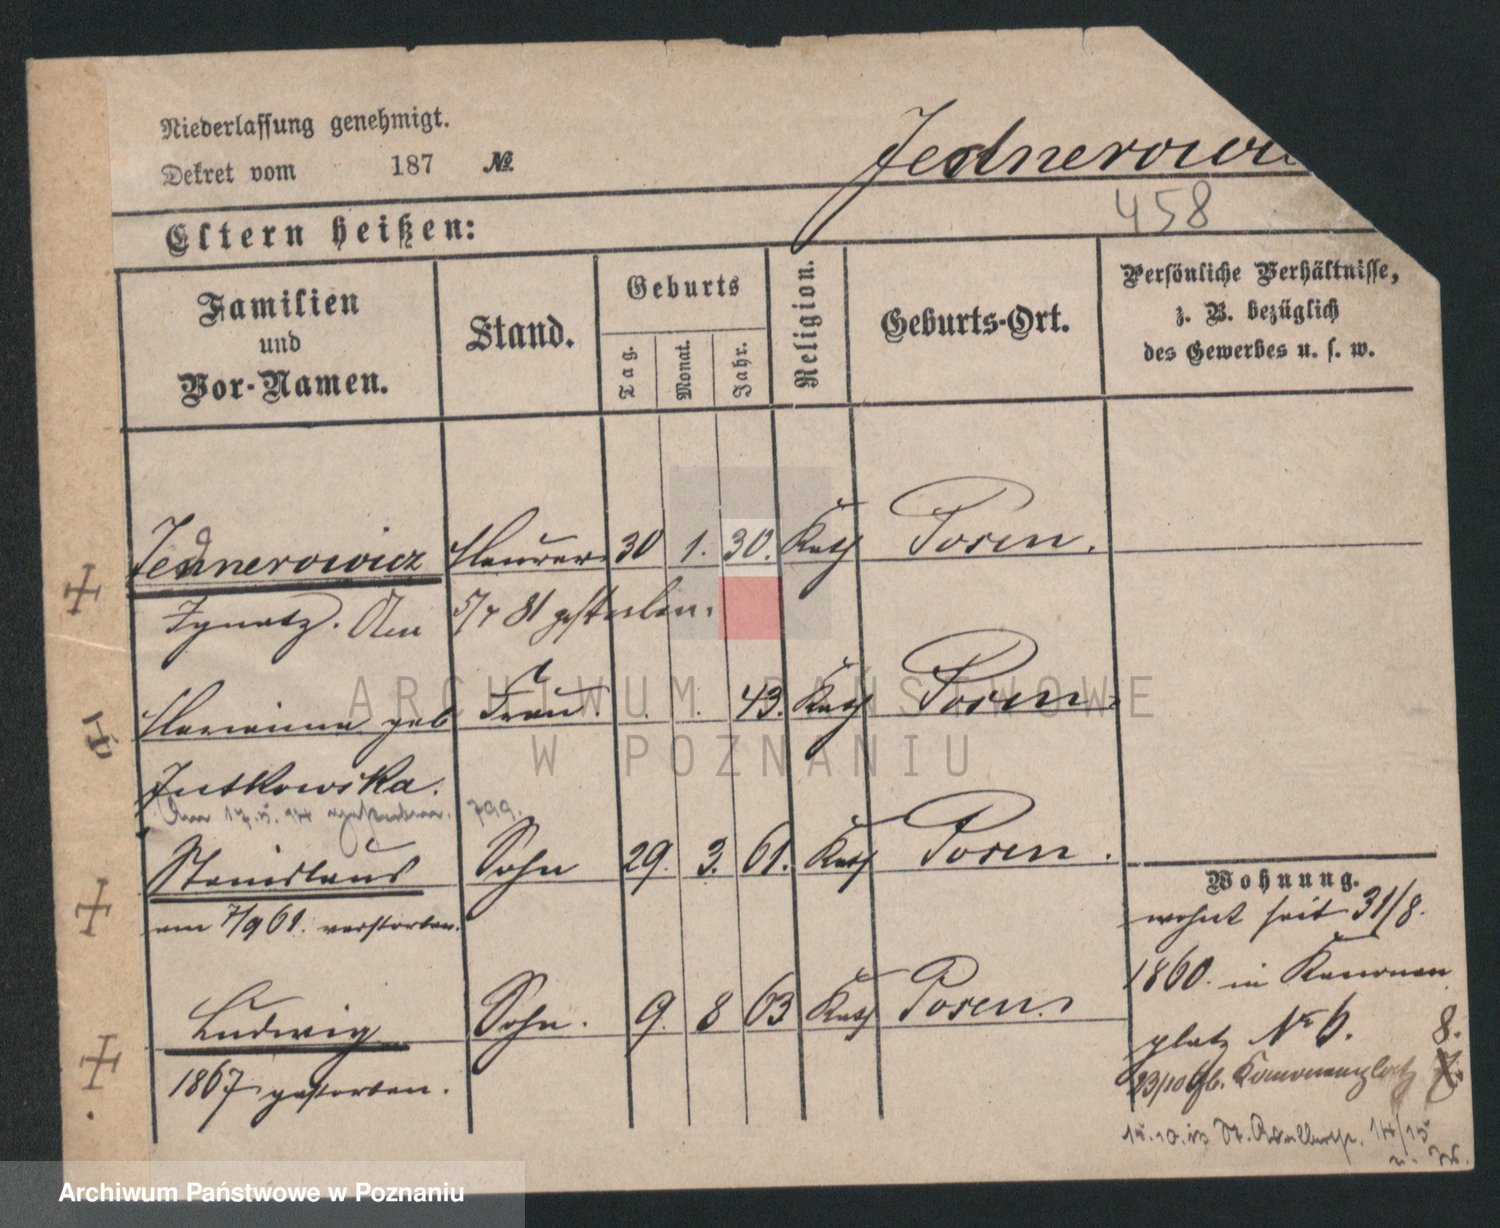 Niederlassung genehmigt.
Dekret vom 187 №
Jednerowi
458
Eltern heißen:
Familien und Vor-Namen.
Stand.
Geburts
Tag.
Monat.
Jahr.
Religion.
Geburts-Ort.
Persönliche Verhältnisse,
z. B. bezüglich
des Gewerbes u. s. w.
Jednerowicz Maurer 30 1. 30. Kath Posen.
Ignatz. Am 5/7 81 gestorben.
Marianna geb Frau. 43. Kath Posen.
Jutkowska.
Am 17.5. 94 gestorben. 799.
Stanislaus Sohn 29. 3. 61. Kath Posen.
am 7/9 61. verstorben.
Ludwig Sohn. 9. 8 63 Kath Posen.
1867 gestorben.
Wohnung.
wohnt seit 31/8.
1860. in Kanonen
platz No 6. 8.
23/10 Kanonenplatz
14/15
ARCHIWUM PAŃSTWOWE
W POZNANIU
Archiwum Państwowe w Poznaniu